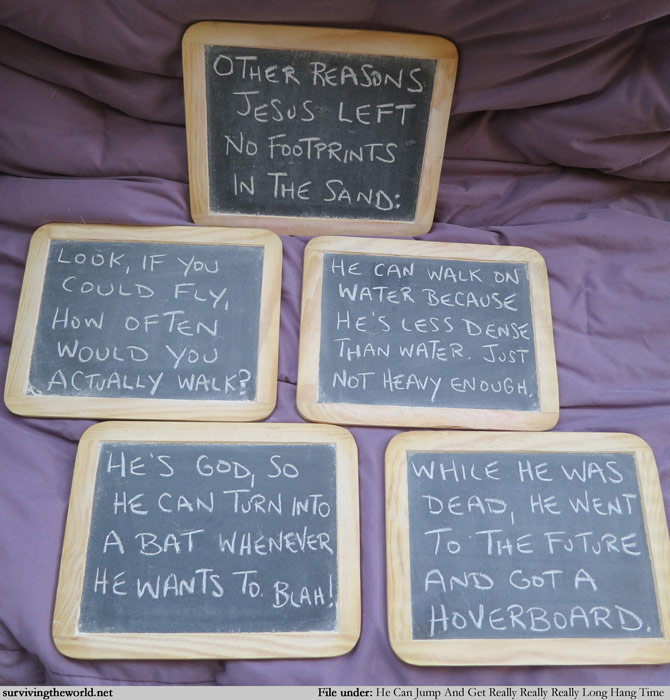 OTHER REASONS
JESUS LEFT
NO FOOTPRINTS
IN THE SAND:
LOOK, IF YOU
COULD FLY,
HOW OFTEN
WOULD YOU
ACTUALLY WALK?
HE CAN WALK ON
WATER BECAUSE
HE'S LESS DENSE
THAN WATER. JUST
NOT HEAVY ENOUGH.
HE'S GOD, SO
HE CAN TURN INTO
A BAT WHENEVER
HE WANTS TO. BLAH!
WHILE HE WAS
DEAD, HE WENT
TO THE FUTURE
AND GOT A
HOVERBOARD.
survivingtheworld.net
File under: He Can Jump And Get Really Really Really Long Hang Time